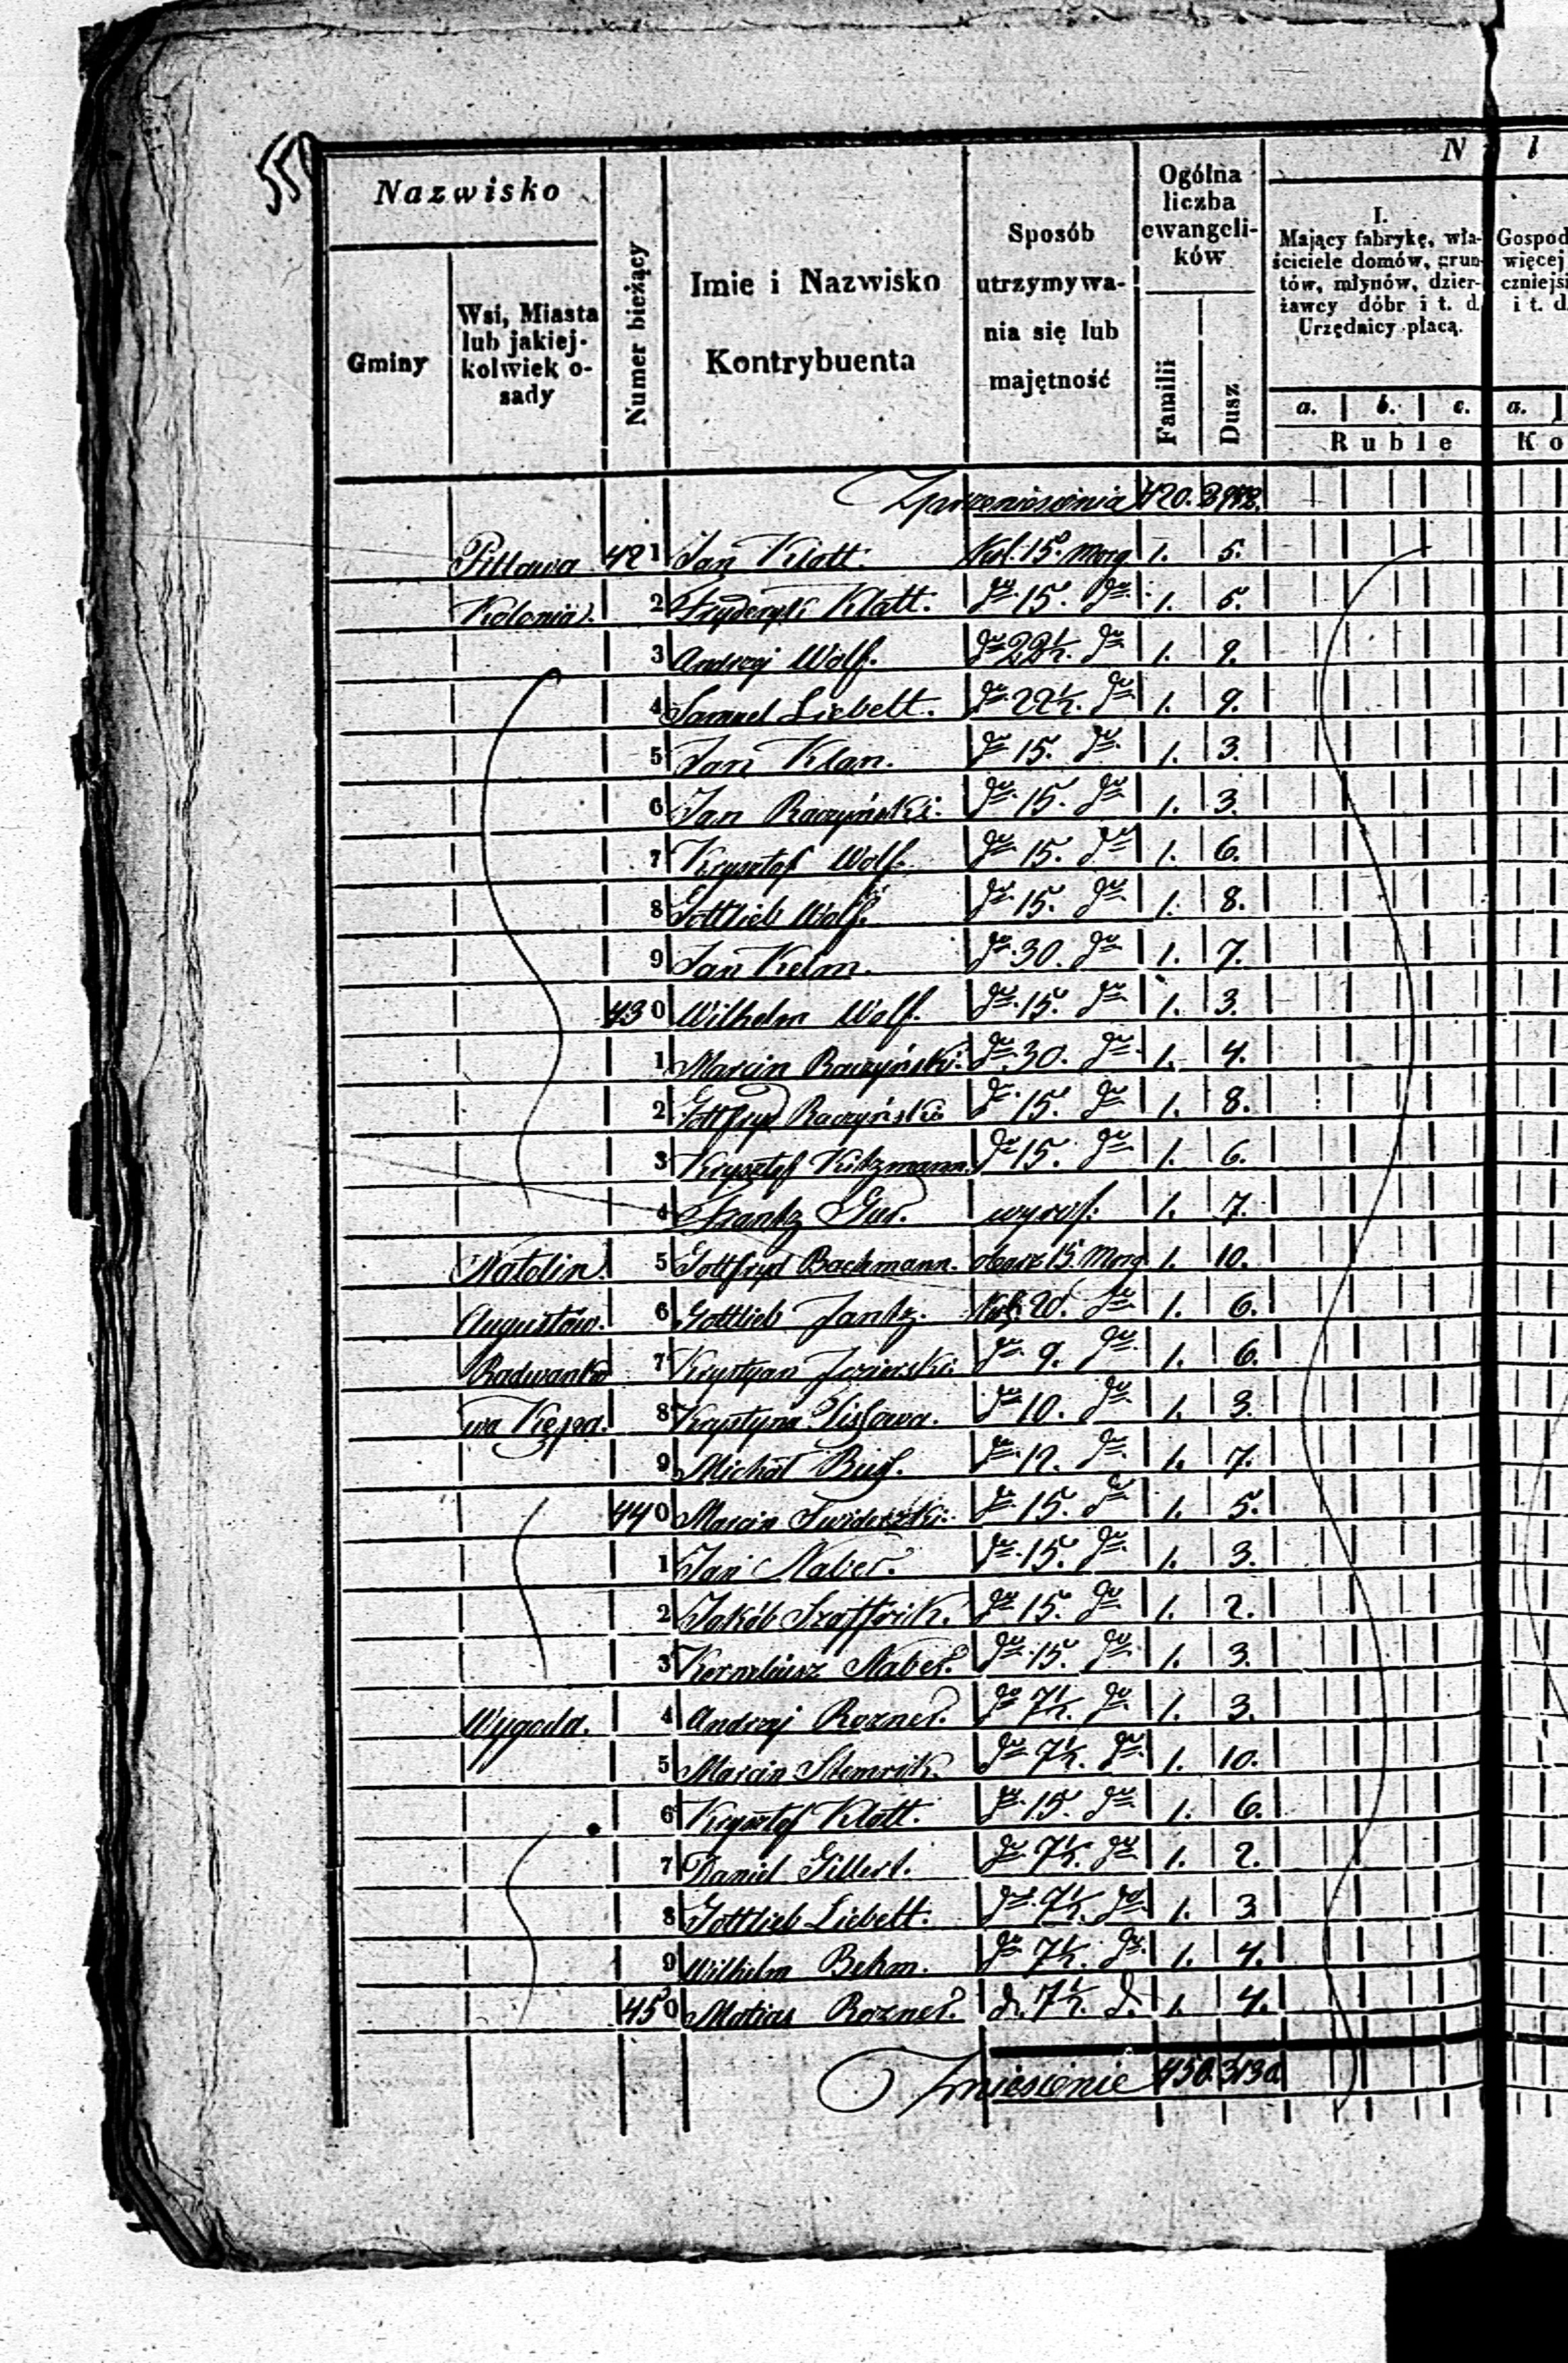 550
Nazwisko
Gminy
Wsi, Miasta lub jakiej-kolwiek o-sady
Numer bieżący
Imie i Nazwisko Kontrybuenta
Sposób utrzymywa-nia się lub majętność
Ogólna liczba ewangeli-ków
Familii
Dusz
N l
I. Mający fabrykę, wła-ściciele domów, grun-tów, młynów, dzier-żawcy dóbr i t. d. Urzędnicy płacą.
Gospod więcej czniejsi i t. d
a. b. c. a.
Ruble Ko
Z przeniesienia 420. 2982.
Pillawa 421 Jan Klatt. Kol. 15. Morg 1. 5.
Kolonia. 2 Fryderyk Klatt. do 15. do 1. 5.
3 Andrzej Wolf. do 22½. do 1. 9.
4 Samuel Liebelt. do 22½. do 1. 9.
5 Jan Klan. do 15. do 1. 3.
6 Jan Raczyński. do 15. do 1. 3.
7 Krysztof Wolf. do 15. do 1. 6.
8 Gottlieb Wolf. do 15. do 1. 8.
9 Jan Kelm. do 30. do 1. 7.
430 Wilhelm Wolf. do 15. do 1. 3.
1 Marcin Raczyński. do 30. do 1. 4.
2 Gottfryd Raczyński do 15. do 1. 8.
3 Krysztof Kitzmann. do 15. do 1. 6.
4 Frantz 1. 7.
Natolin. 5 Gottfryd Bachmann. 15 Morg 1. 10.
Augustów. 6 Gottlieb Jantz. Kol. do 1. 6.
Radwanko 7 Krystyan Jezierski. do 9. do 1. 6.
wa Kępa. 8 Krystyna do 10. do 1. 3.
9 Michał do 12. do 1. 7.
440 Marcin Swiderski. do 15. do 1. 5.
1 Jan Naber. do 15. do 1. 3.
2 Jakób Szaffrik. do 15. do 1. 2.
3 Korneliusz Naber. do 15. do 1. 3.
Wygoda. 4 Andrzej Rozner. do 7½. do 1. 3.
5 Marcin do 7½. do 1. 10.
6 Krysztof Klatt. do 15. do 1. 6.
7 Daniel Gillert. do 7½. do 1. 2.
8 Gottlieb Liebelt. do 7½. do 1. 3
9 Wilhelm Behm. do 7½. do 1. 4.
450 Matias Rozner. d. 7½. d. 1. 4.
Zniesienie 450. 3130